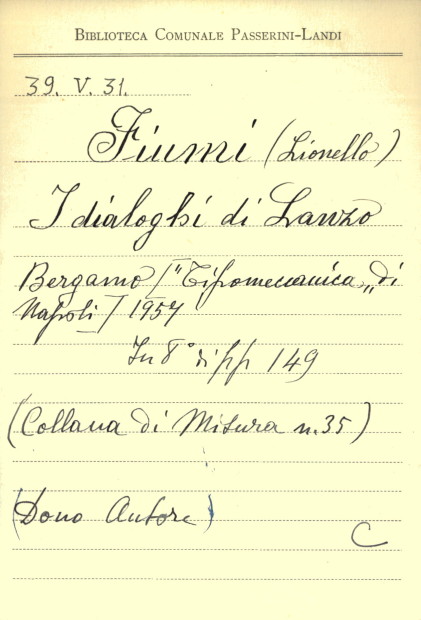 BIBLIOTECA COMUNALE PASSERINI-LANDI
39. V. 31.
Fiumi (Lionello)
I dialoghi di Lanzo
Bergamo ["Tipomeccanica„ di
Napoli] 1957
In 8° di pp 149
(Collana di Misura n. 35)
(Dono Autore)
C